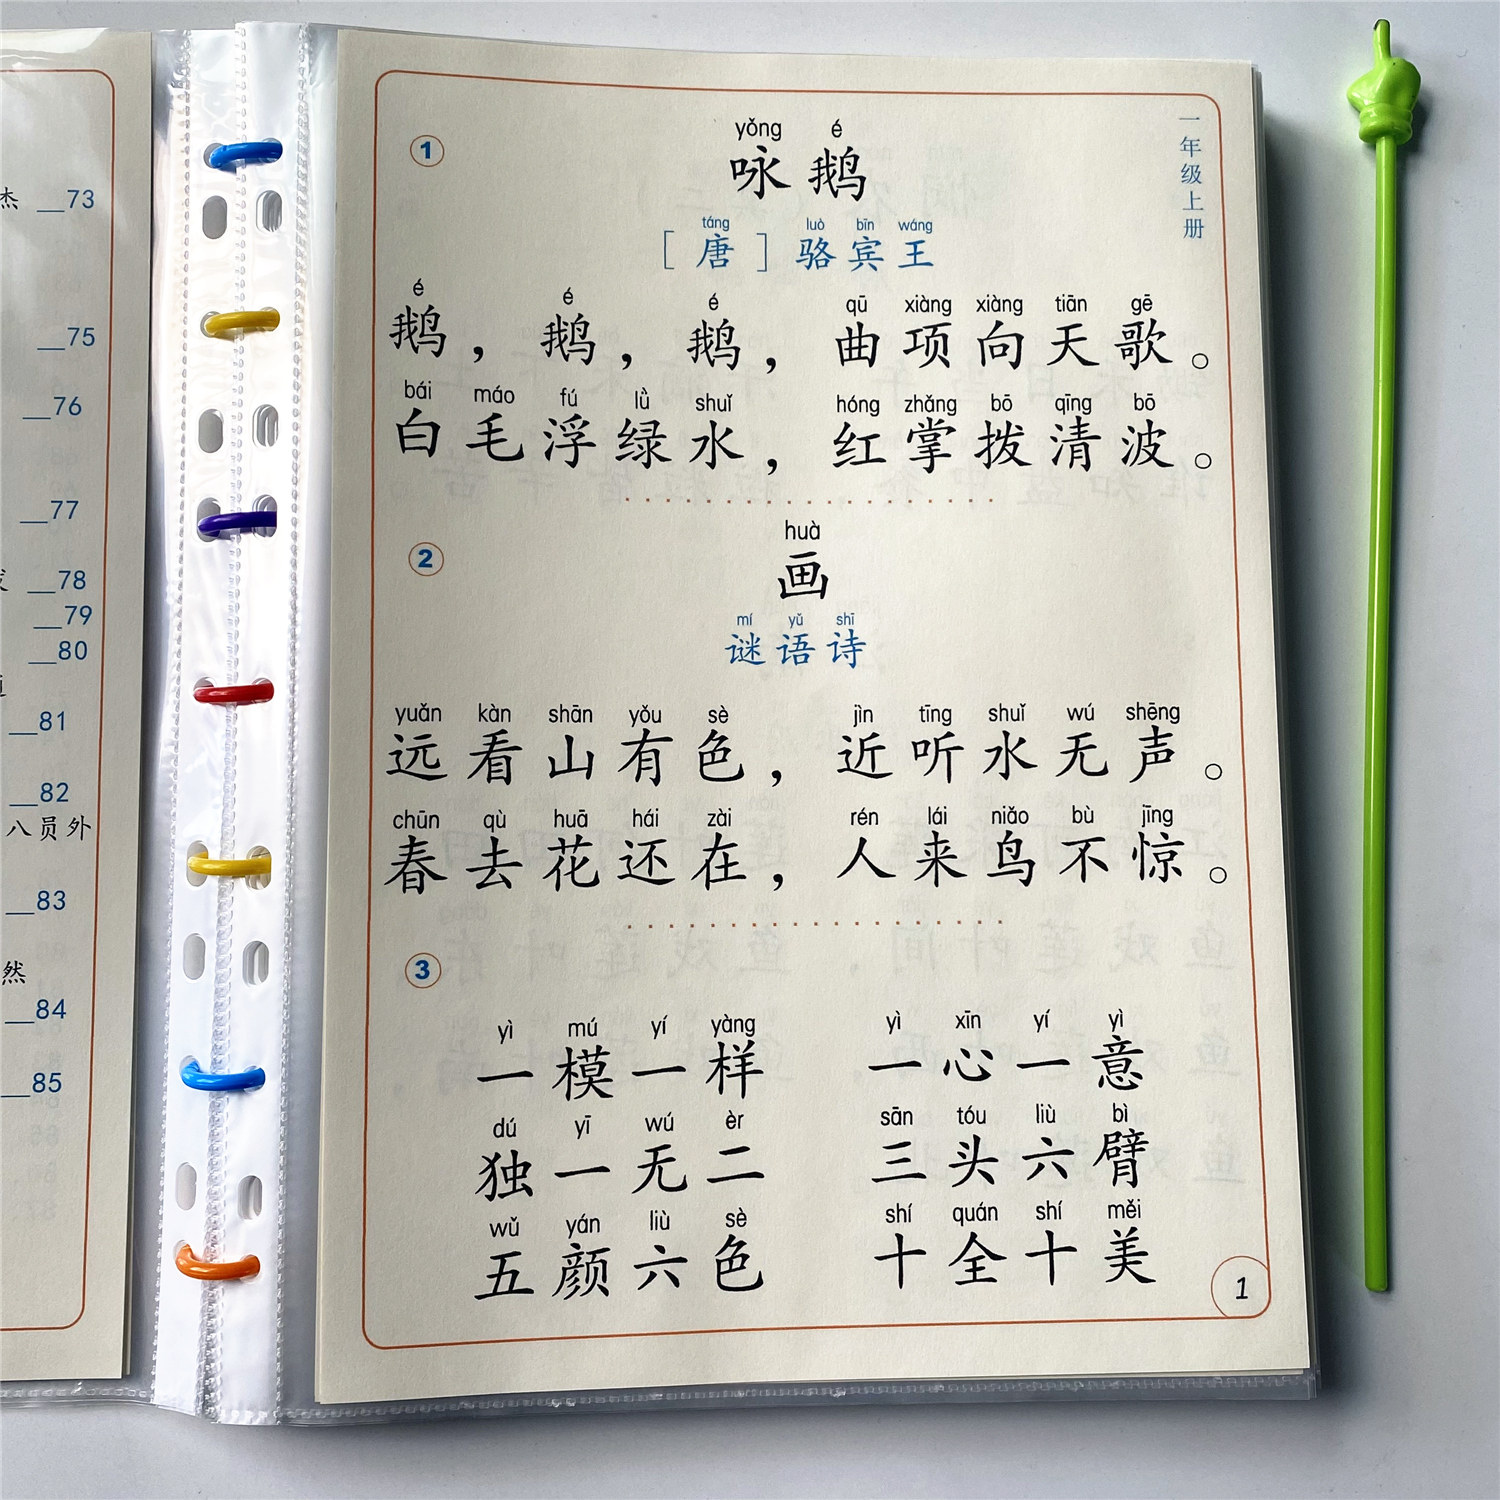 杰 __73
__75
__76
__77
__78
__79
__80
__81
__82
八员外
__83
然
__84
__85
一年级上册
1
yǒng é
咏鹅
táng luò bīn wáng
[唐] 骆宾王
é é é qū xiàng xiàng tiān gē
鹅，鹅，鹅，曲项向天歌。
bái máo fú lǜ shuǐ hóng zhǎng bō qīng bō
白毛浮绿水，红掌拨清波。
2
huà
画
mí yǔ shī
谜语诗
yuǎn kàn shān yǒu sè jìn tīng shuǐ wú shēng
远看山有色，近听水无声。
chūn qù huā hái zài rén lái niǎo bù jīng
春去花还在，人来鸟不惊。
3
yì mú yí yàng yì xīn yí yì
一模一样 一心一意
dú yī wú èr sān tóu liù bì
独一无二 三头六臂
wǔ yán liù sè shí quán shí měi
五颜六色 十全十美
1